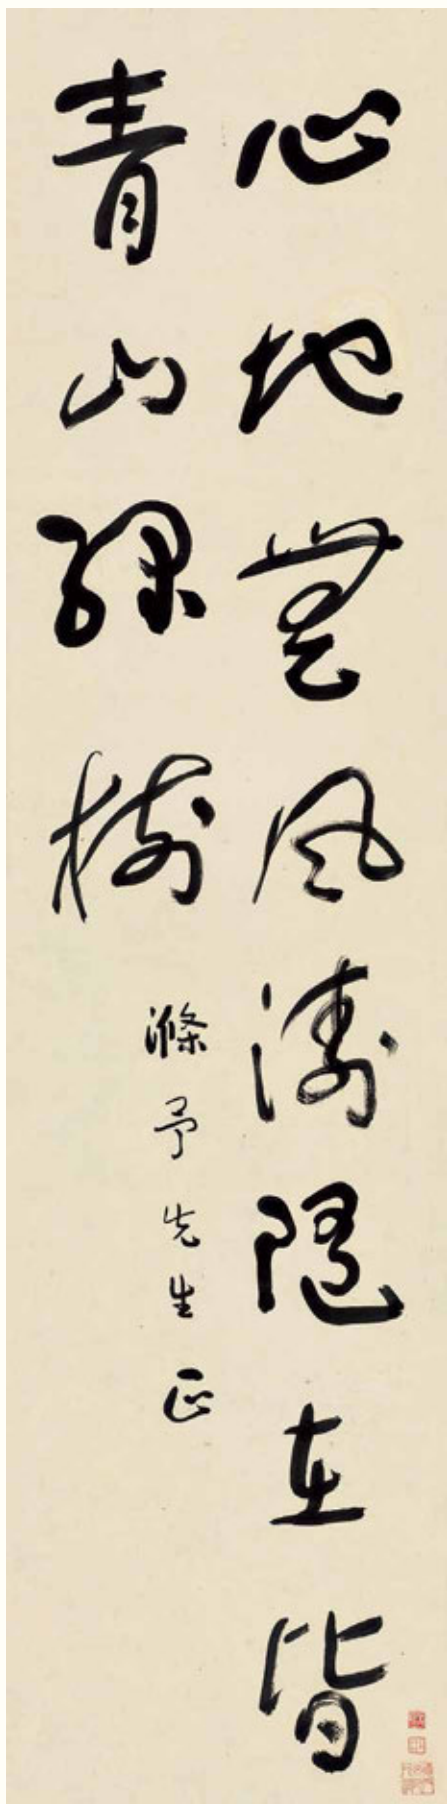 心地無風濤隨在皆
青山綠樹
滌予先生正